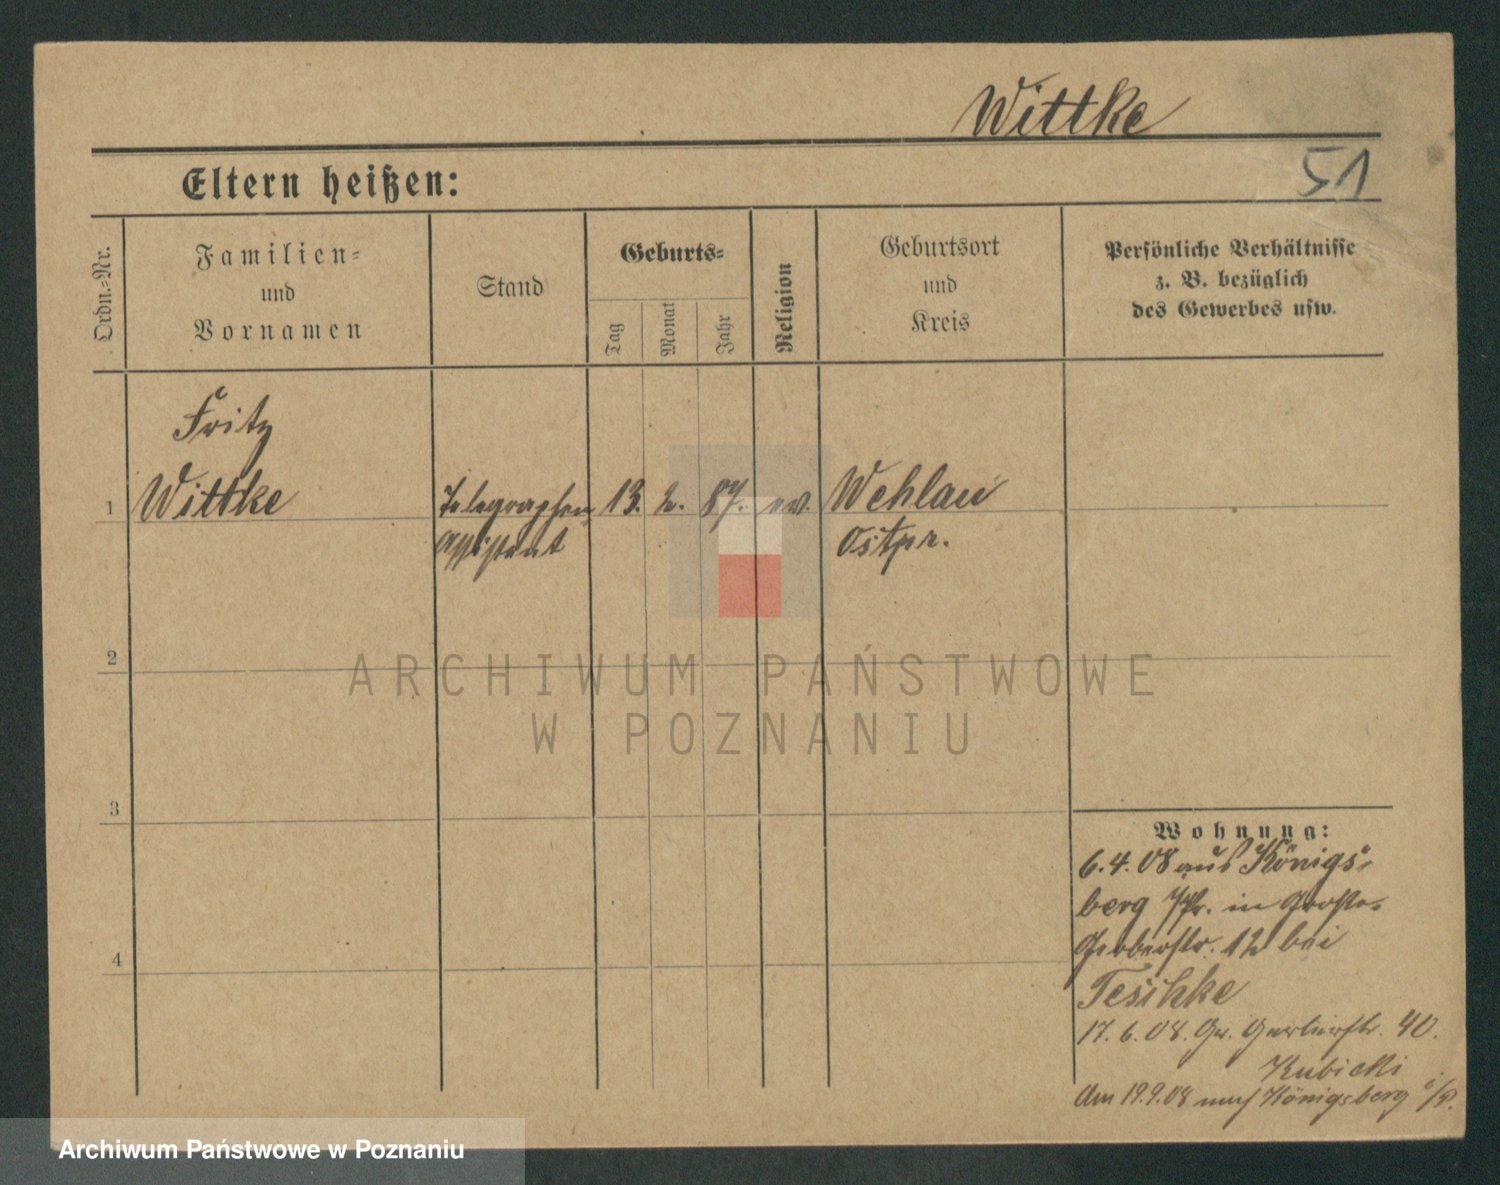 Wittke
51
Eltern heißen:
Ordn.-Nr.
Familien- und Vornamen
Stand
Geburts-
Tag
Monat
Jahr
Religion
Geburtsort und Kreis
Persönliche Verhältnisse
z. B. bezüglich
des Gewerbes usw.
Fritz
1 Wittke Telegraphen 13. 2. 87. ev. Wehlau
assistent Ostpr.
2
3
4
Wohnung:
6.4.08 aus Königs-
berg /Pr. in Große-
Gerberstr. 12 bei
Teschke
17.6.08. Gr. Gerberstr. 40.
Kubicki
Am 19.9.08 nach Königsberg i/P.
ARCHIWUM PAŃSTWOWE
W POZNANIU
Archiwum Państwowe w Poznaniu